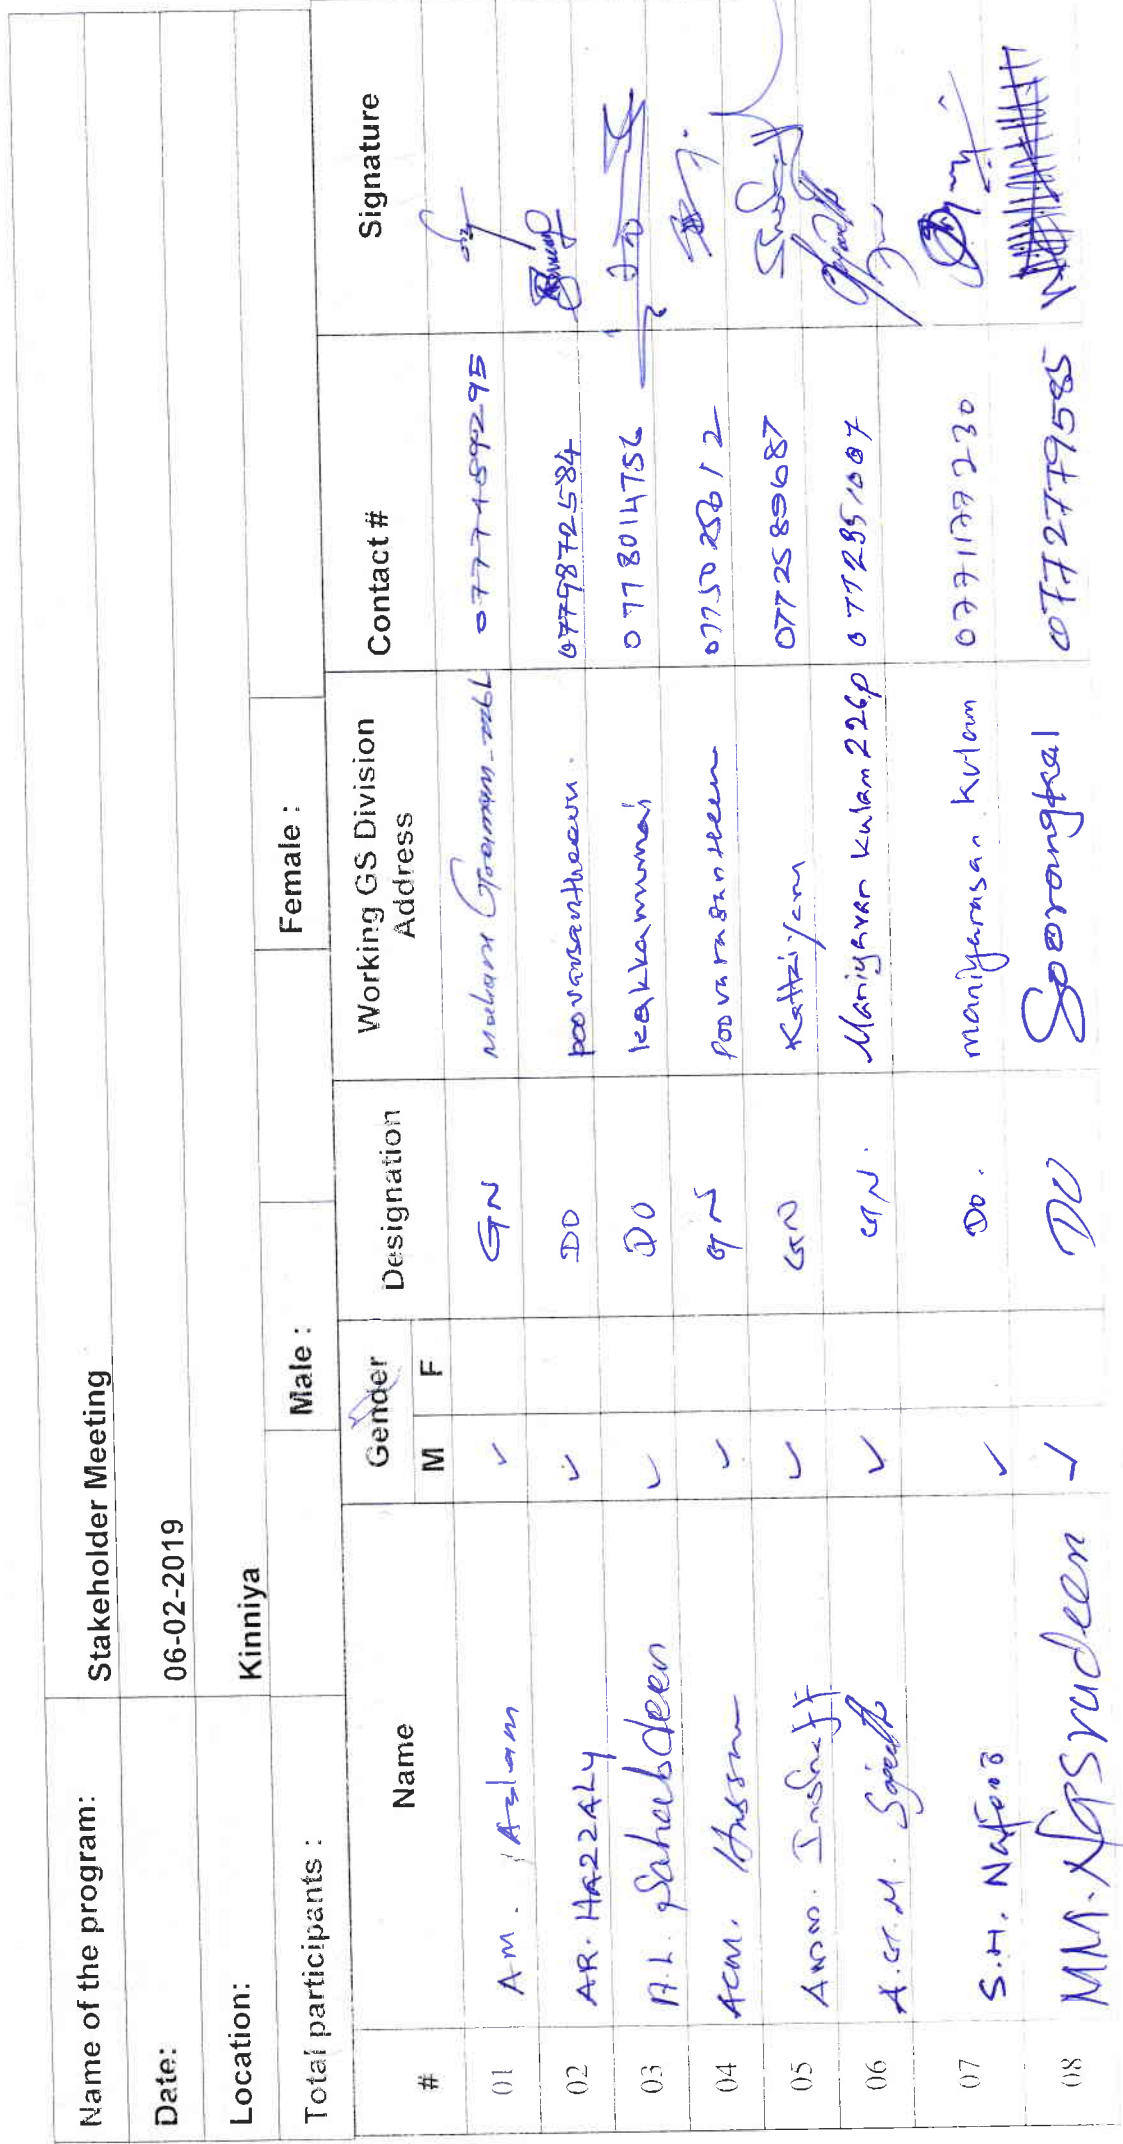 Name of the program: Stakeholder Meeting
Date: 06-02-2019
Location: Kinniya
Total participants : Male : Female :
# Name Gender Designation Working GS Division Address Contact # Signature
M F
01 A.M. Azlam ✓ GN Maharu Graamam-226L
02 AR. HAZZALY ✓ DO poovarsantheevu. 0779872584
03 A.L. Sahabdeen ✓ DO kakkamunai 0778014756
04 ACM. Hussn ✓ GN Poovarasantheen 0775025612
05 ✓ GN Kattaiyam 0772589687
06 A.G.M. ✓ GN. Maniyavan kulam 226P 0772951007
07 S.H. Nafoos ✓ Do. maniyarasan kulam 0771177230
08 MM. Nasrudeen ✓ DO Soorangkal 0772779585